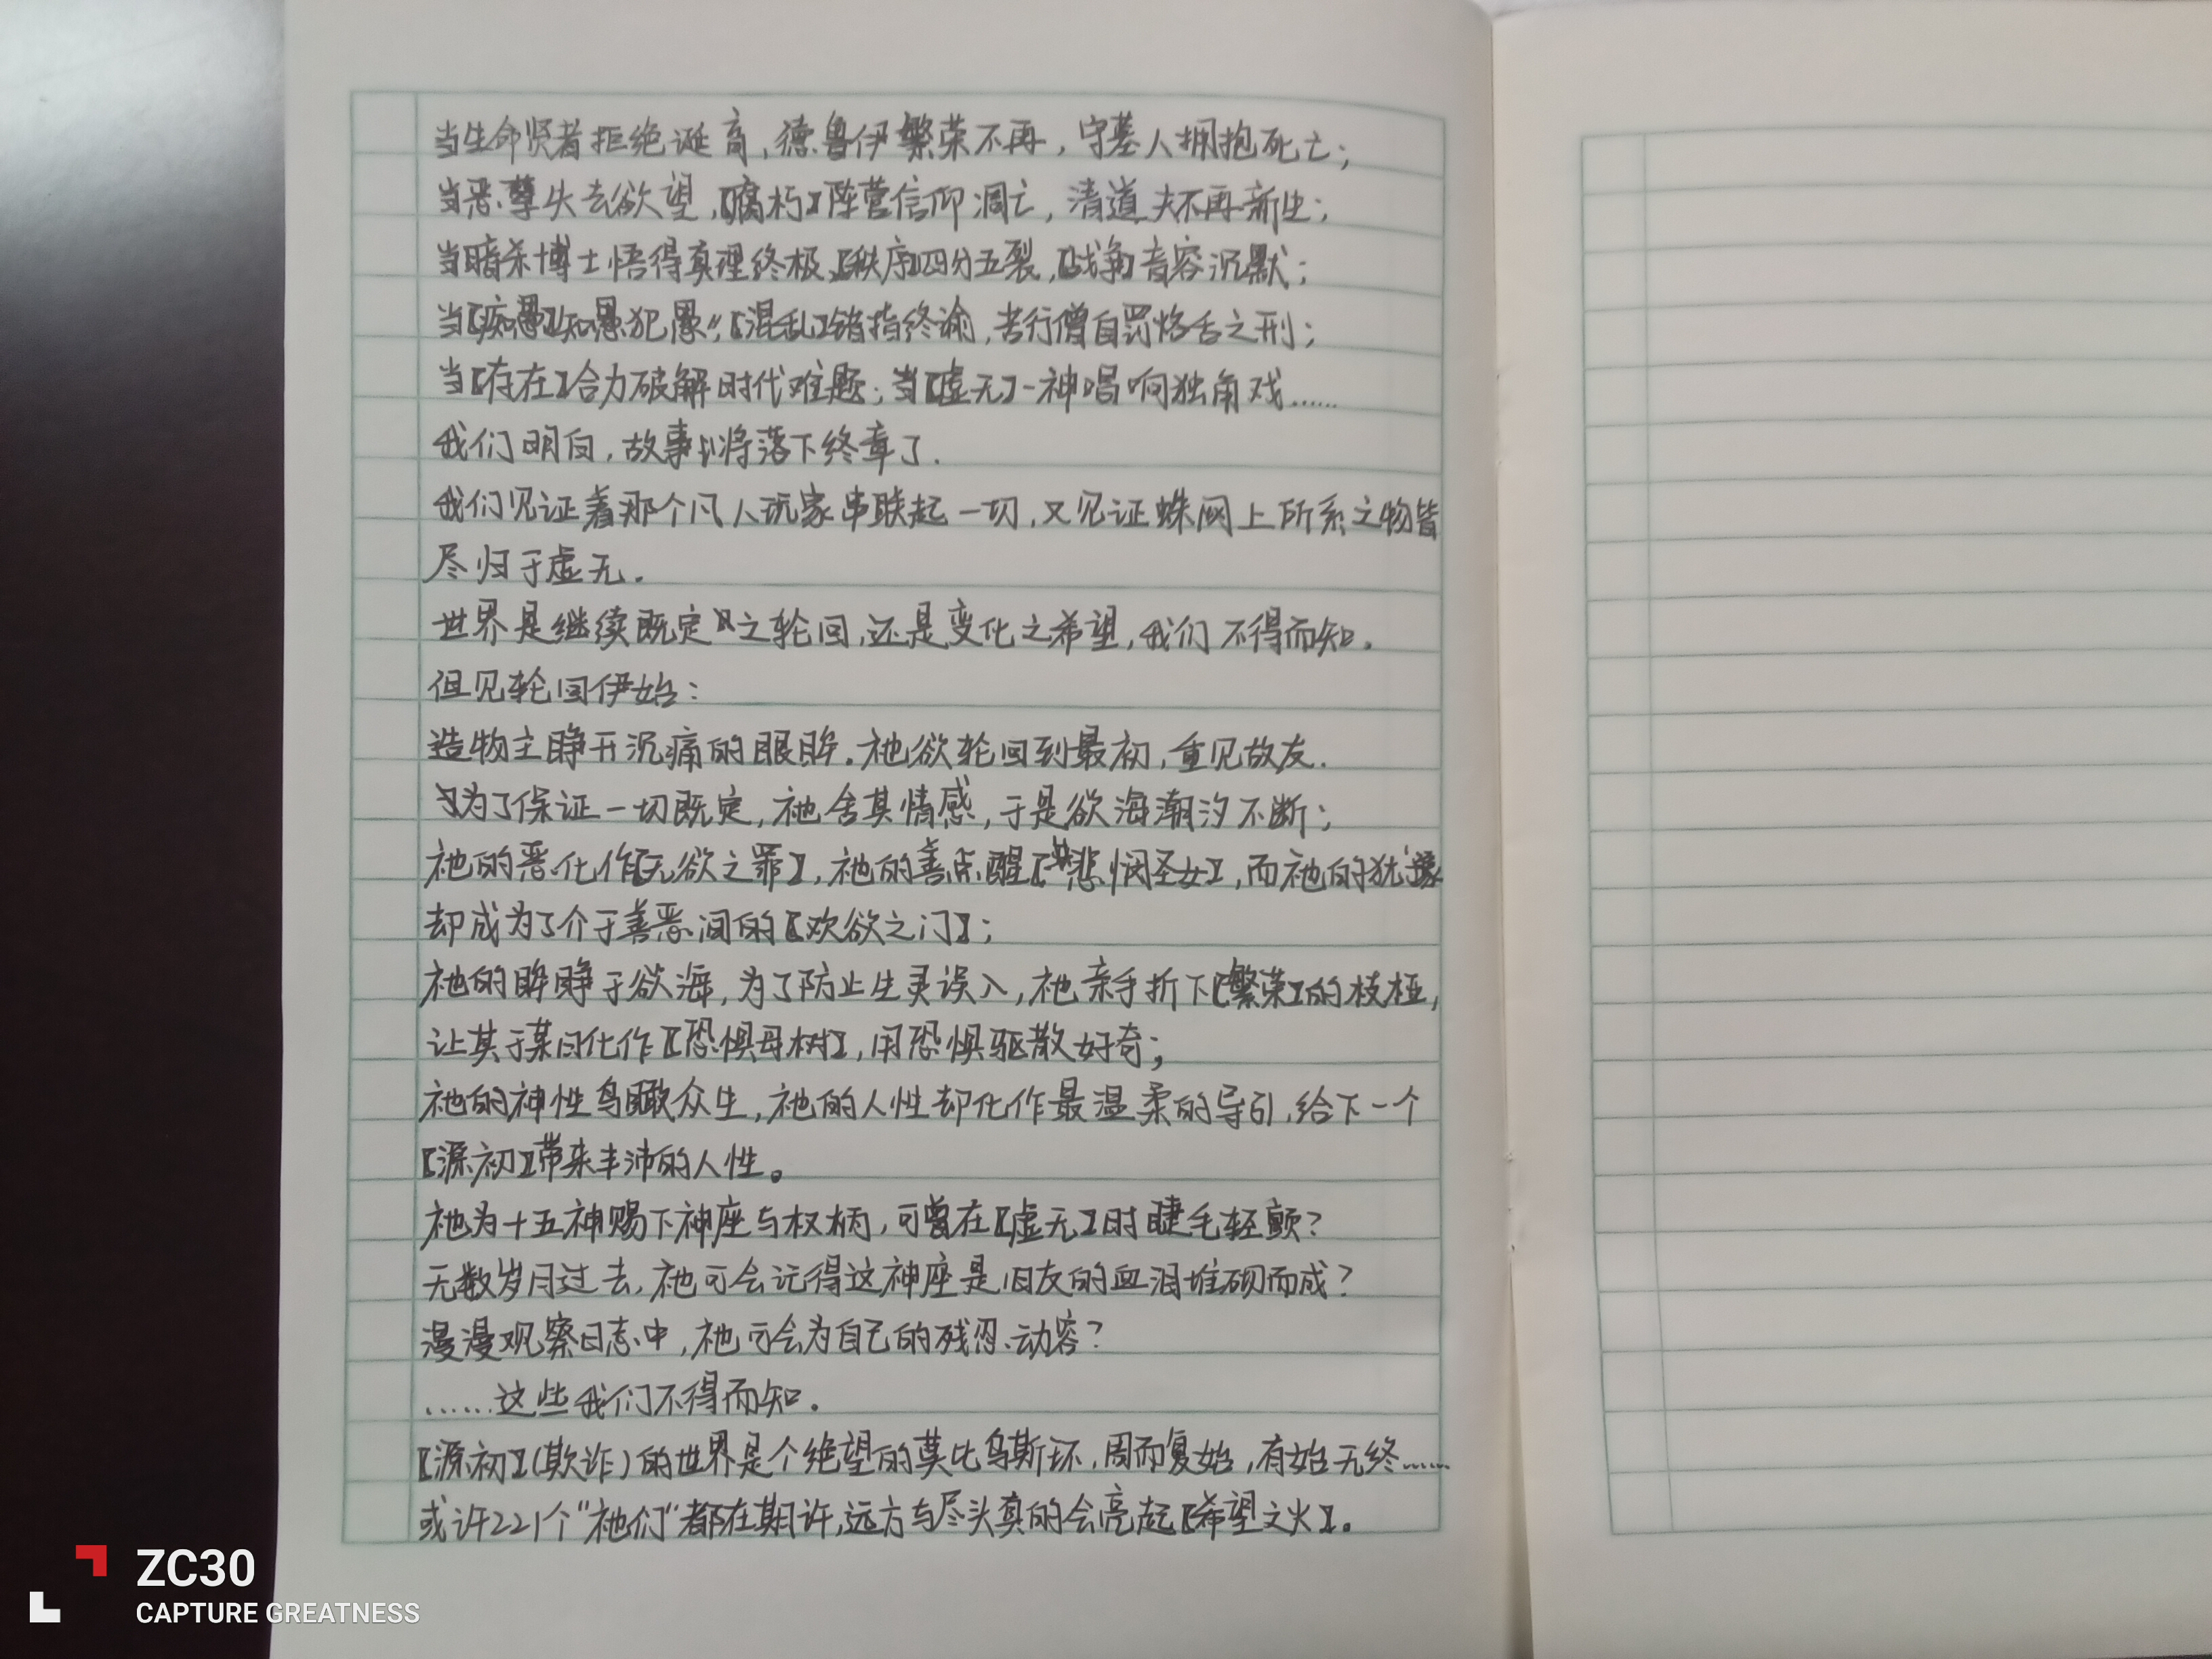 当生命贤者拒绝诞育,德鲁伊繁荣不再,守墓人拥抱死亡;
当恶孽失去欲望,【腐朽】阵营信仰凋亡,清道夫不再新生;
当暗杀博士悟得真理终极,【秩序】四分五裂,【战争】音容沉默;
当【痴愚】“知愚犯愚”,【混乱】错指终谕,苦行僧自罚烙舌之刑;
当【存在】合力破解时代难题;当【虚无】一神唱响独角戏……
我们明白,故事将落下终章了.
我们见证着那个凡人玩家串联起一切,又见证蛛网上所系之物皆
尽归于虚无.
世界是继续既定之轮回,还是变化之希望,我们不得而知.
但见轮回伊始:
造物主睁开沉痛的眼眸.祂欲轮回到最初,重见故友.
为了保证一切既定,祂舍其情感,于是欲海潮汐不断;
祂的恶化作【无欲之罪】,祂的善点醒【悲悯圣女】,而祂的犹豫
却成为了介于善恶间的【欢欲之门】;
祂的眸睁于欲海,为了防止生灵误入,祂亲手折下【繁荣】的枝桠,
让其于某日化作【恐惧母树】,用恐惧驱散好奇;
祂的神性鸟瞰众生,祂的人性却化作最温柔的导引,给下一个
【源初】带来丰沛的人性。
祂为十五神赐下神座与权柄,可曾在【虚无】时睫毛轻颤?
无数岁月过去,祂可会记得这神座是旧友的血泪堆砌而成?
漫漫观察日志中,祂可会为自己的残忍动容?
……这些我们不得而知.
【源初】(欺诈)的世界是个绝望的莫比乌斯环,周而复始,有始无终……
或许221个“祂们”都在期许,远方与尽头真的会亮起【希望之火】.
ZC30
CAPTURE GREATNESS